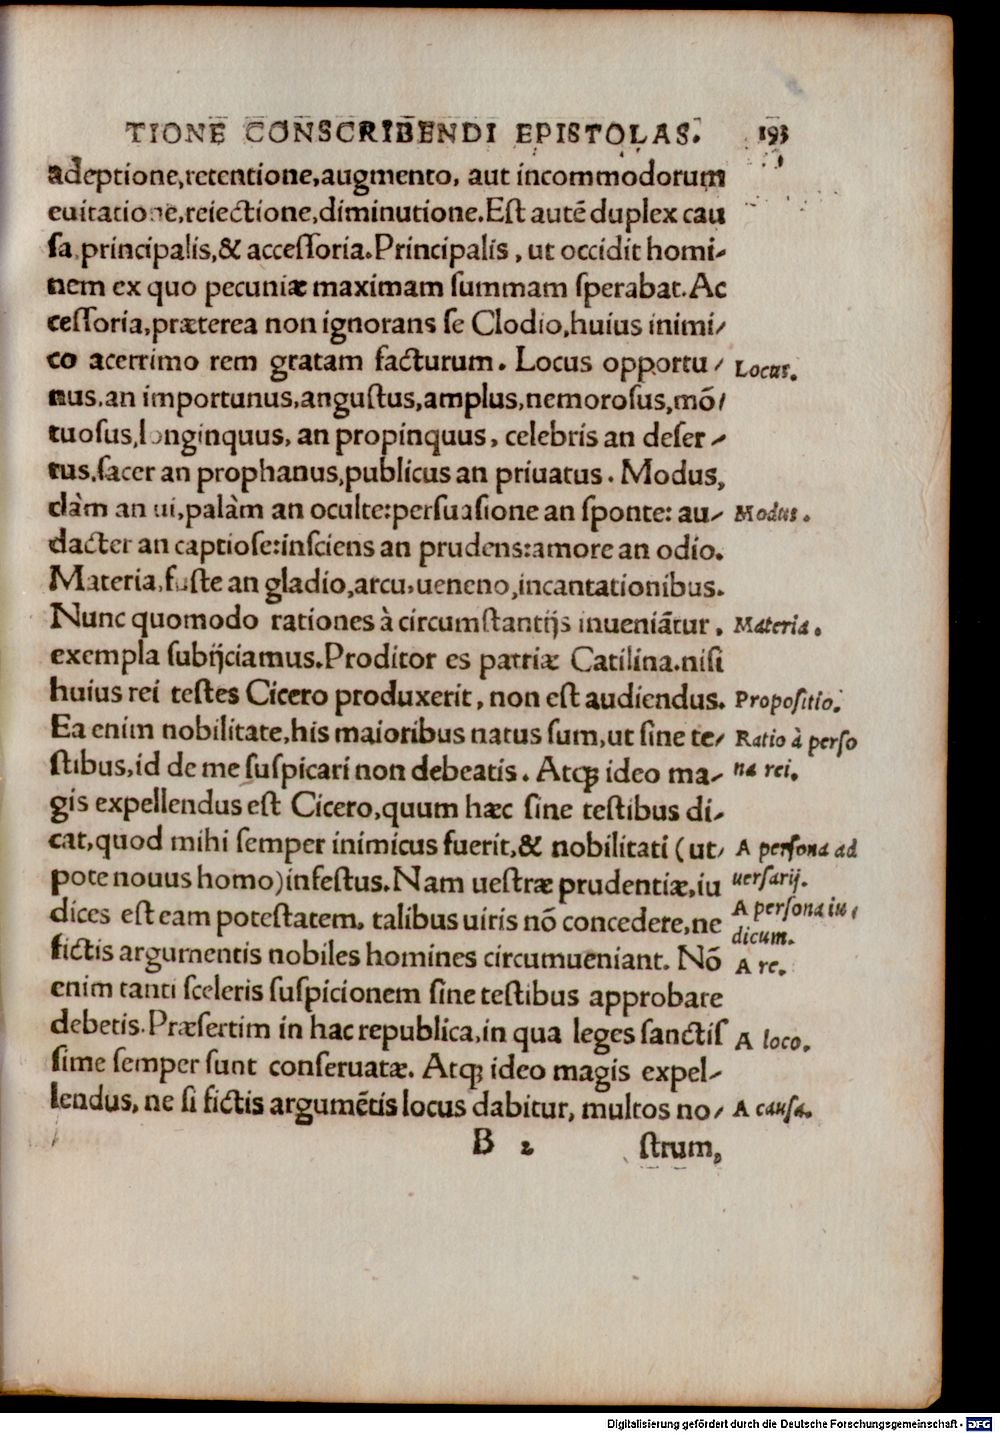 TIONE CONSCRIBENDI EPISTOLAS. 193
adeptione,retentione,augmento, aut incommodorum
euitatione,reiectione,diminutione.Est autē duplex cau
sa,principalis,& accessoria.Principalis, ut occidit homi-
nem ex quo pecuniæ maximam summam sperabat.Ac
cessoria,præterea non ignorans se Clodio,huius inimi-
co acerrimo rem gratam facturum. Locus opportu-
Locus.
nus,an importunus,angustus,amplus,nemorosus,mō-
tuosus,longinquus, an propinquus, celebris an deser-
tus,sacer an prophanus,publicus an priuatus. Modus,
clàm an ui,palàm an oculte:persuasione an sponte: au-
Modus.
dacter an captiose:insciens an prudens:amore an odio.
Materia,fuste an gladio,arcu,ueneno,incantationibus.
Nunc quomodo rationes à circumstantijs inueniātur,
Materia.
exempla subijciamus.Proditor es patriæ Catilina.nisi
huius rei testes Cicero produxerit, non est audiendus.
Propositio.
Ea enim nobilitate,his maioribus natus sum,ut sine te-
Ratio à perso
stibus,id de me suspicari non debeatis. Atqꝫ ideo ma-
na rei.
gis expellendus est Cicero,quum hæc sine testibus di-
cat,quod mihi semper inimicus fuerit,& nobilitati (ut-
A persona ad
pote nouus homo)infestus.Nam uestræ prudentiæ,iu
uersarij.
dices est eam potestatem, talibus uiris nō concedere,ne
A persona iu-
dicum.
fictis argumentis nobiles homines circumueniant. Nō
A re.
enim tanti sceleris suspicionem sine testibus approbare
debetis.Præsertim in hac republica,in qua leges sanctis
A loco.
sime semper sunt conseruatæ. Atqꝫ ideo magis expel-
lendus, ne si fictis argumētis locus dabitur, multos no-
A causa.
B 2 strum,
Digitalisierung gefördert durch die Deutsche Forschungsgemeinschaft - DFG